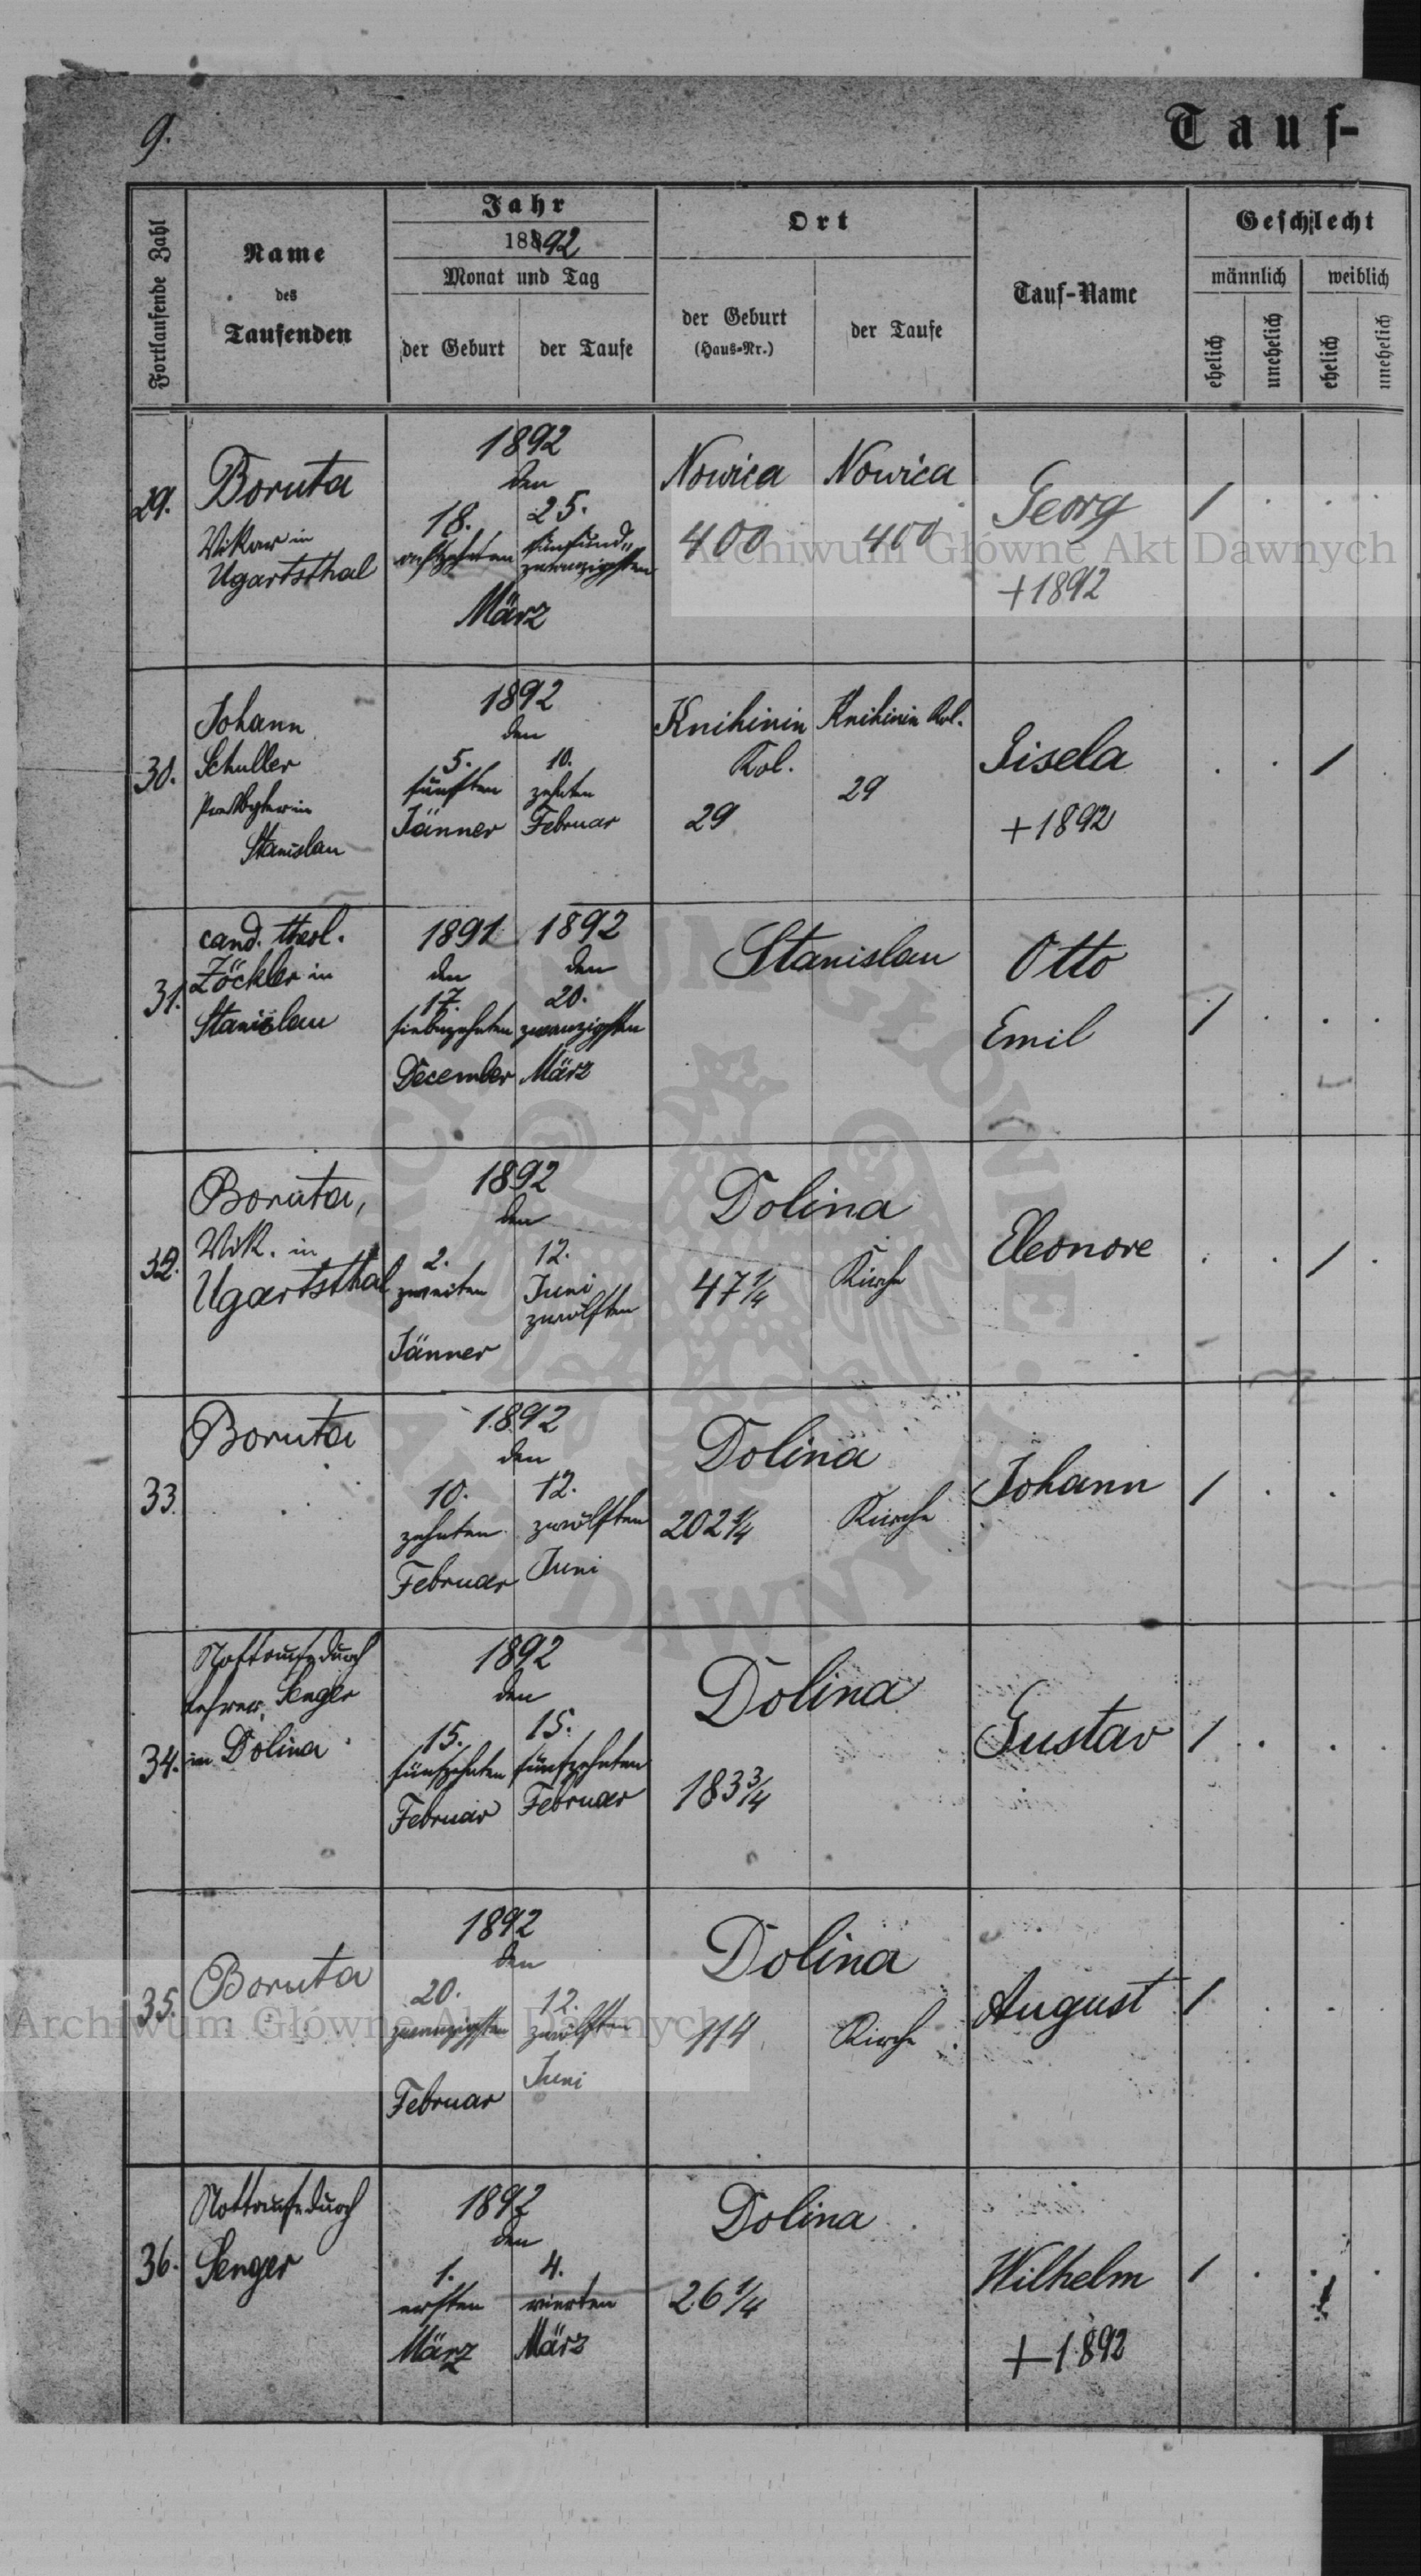 9.
Tauf-
Fortlaufende Zahl
Name
des
Taufenden
Jahr
1892
Monat und Tag
der Geburt
der Taufe
Ort
der Geburt
(Haus-Nr.)
der Taufe
Tauf-Name
Geschlecht
männlich
weiblich
ehelich
unehelich
ehelich
unehelich
29.
Boruta
Vikar in
Ugartsthal
1892
den
18. 25.
achtzehnten fünfund„
zwanzigsten
März
Nowica Nowica
400 400
Georg
+1892
/
30.
Johann
Schuller
Presbyter in
Stanislau
1892
den
5. 10.
fünften zehnten
Jänner Februar
Knihinin Knihinin Kol.
Kol.
29 29
Gisela
+1892
/
31.
cand. theol.
Zöckler in
Stanislau
1891 1892
den den
17. 20.
siebzehnten zwanzigsten
December März
Stanislau
Otto
Emil
/
32.
Boruta,
Vik. in
Ugartsthal
1892
den
2. 12.
zweiten Juni
zwölften
Jänner
Dolina
47 1/4 Kirche
Eleonore
/
33.
Boruta
1892
den
10. 12.
zehnten zwölften
Februar Juni
Dolina
202 1/4 Kirche
Johann
/
34.
Nottaufe durch
Lehrer Senger
in Dolina
1892
den
15. 15.
fünfzehnten fünfzehnten
Februar Februar
Dolina
183 3/4
Gustav
/
35.
Boruta
1892
den
20. 12.
zwanzigsten zwölften
Juni
Februar
Dolina
114 Kirche
August
/
36.
Nottaufe durch
Senger
1892
den
1. 4.
ersten vierten
März März
Dolina
26 1/4
Wilhelm
+1892
/
Archiwum Główne Akt Dawnych
Archiwum Główne Akt Dawnych
ARCHIWUM GŁÓWNE AKT DAWNYCH